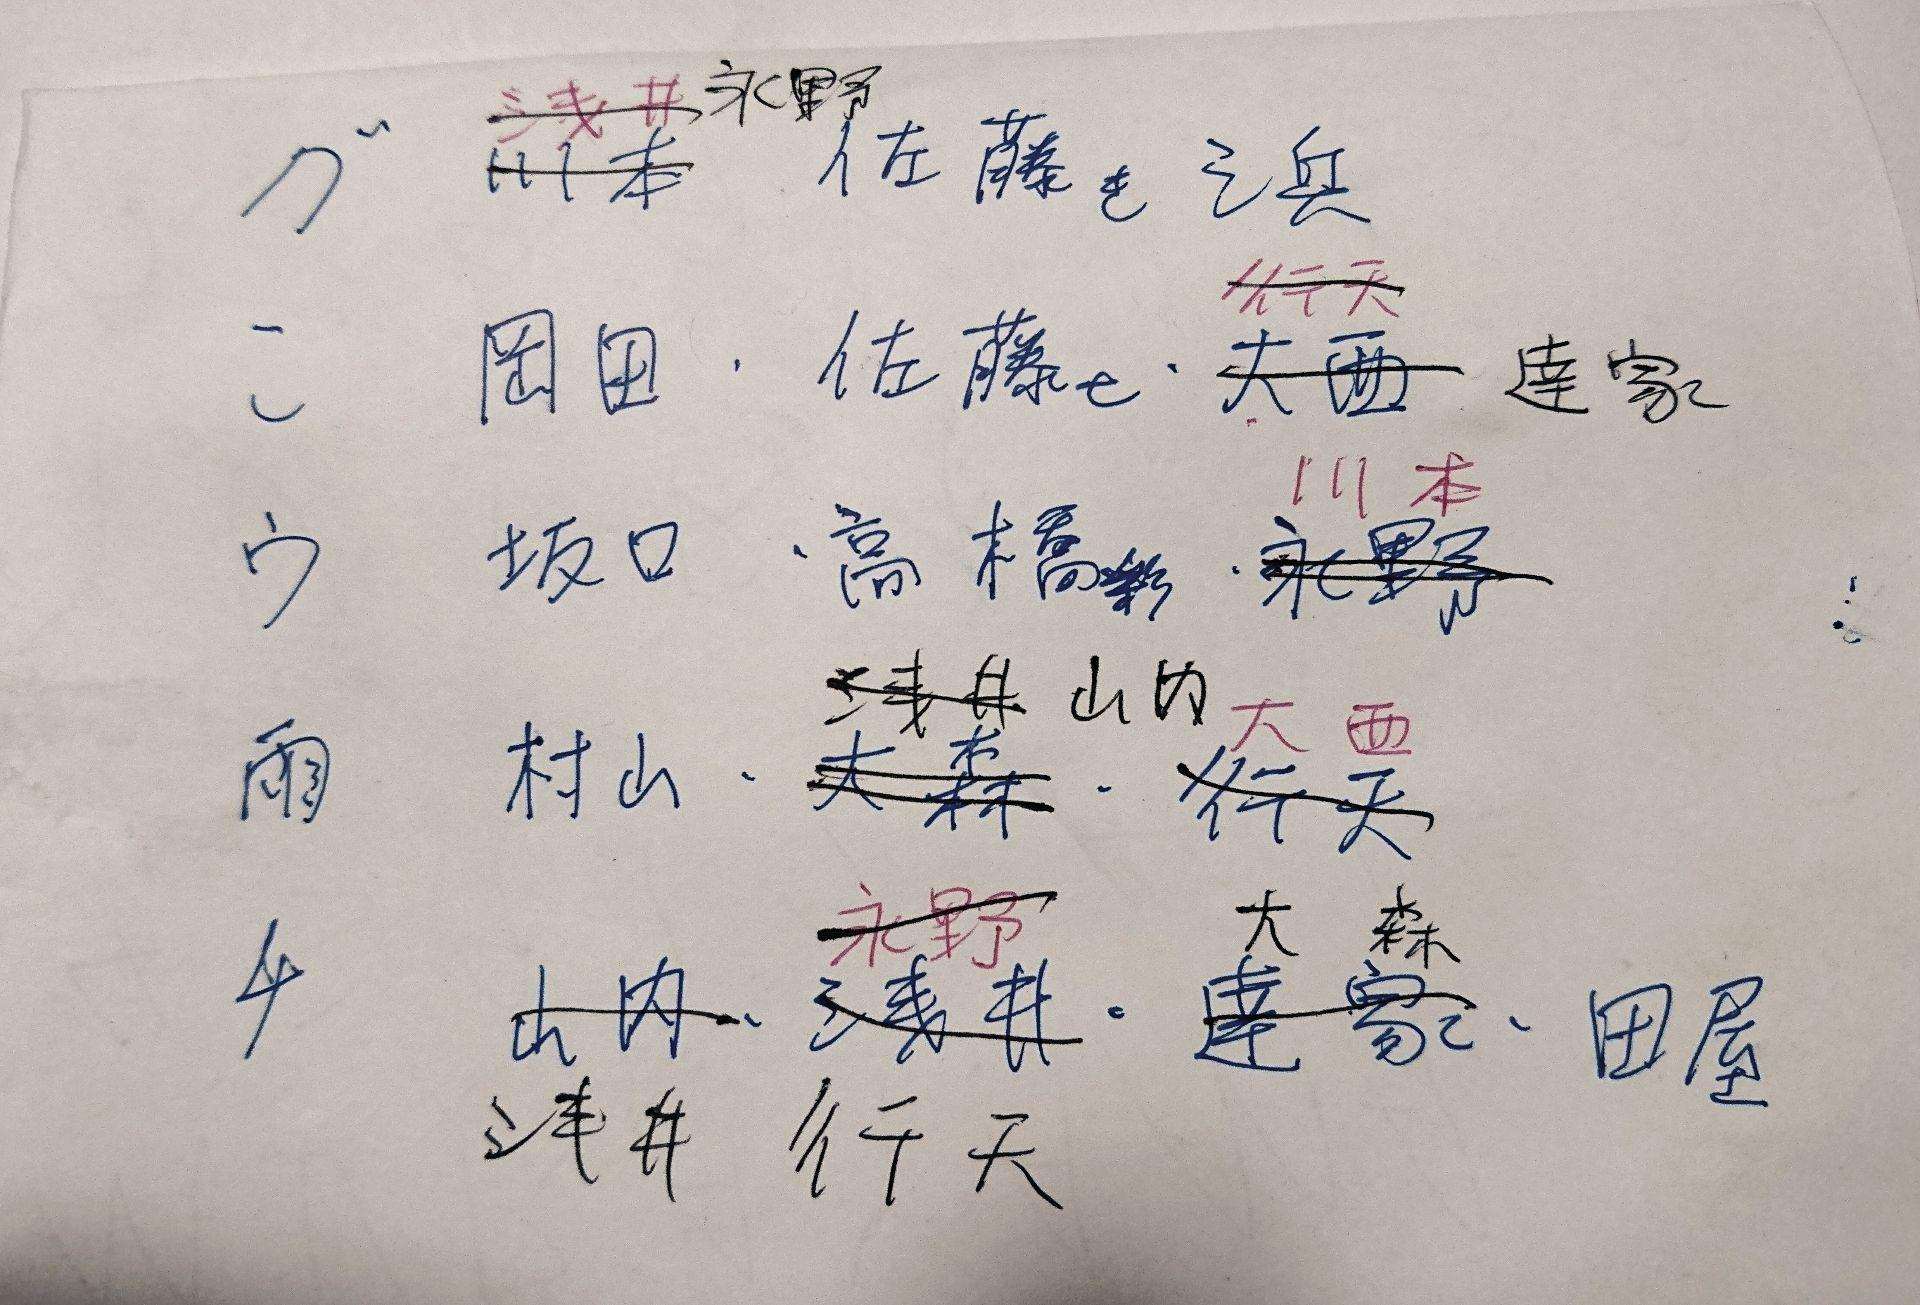 浅井 永野
ガ 川本 佐藤も 之兵
行天
こ 岡田・佐藤セ・大西 達家
川本
ウ 坂口・高橋彩・永野
浅井 山内 大西
雨 村山・大森・行天
永野 大森
チ 山内・浅井・達家・田屋
浅井 行天